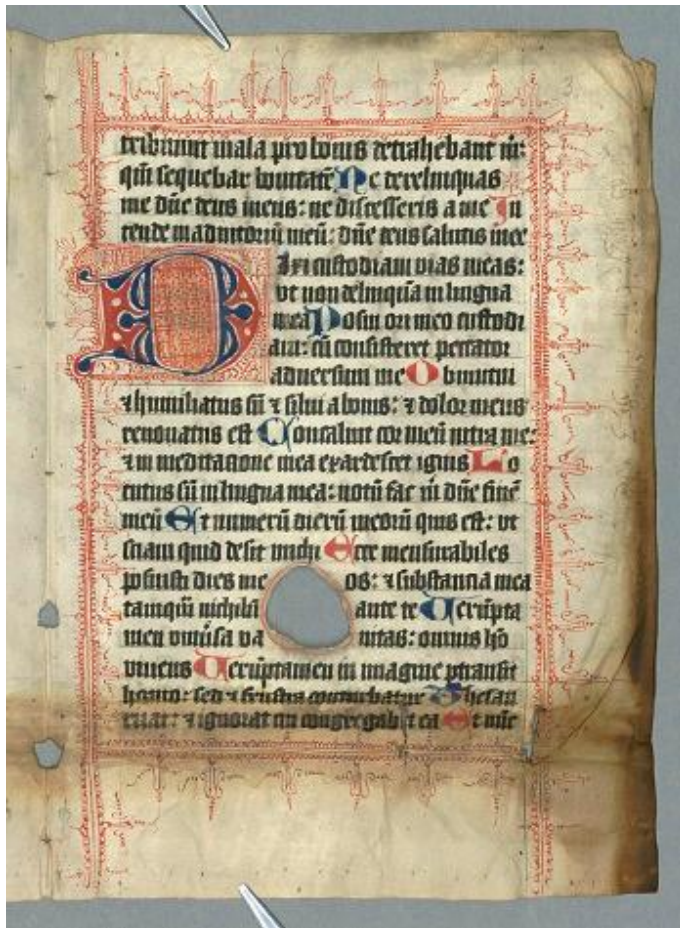 tribuunt mala pro bonis detrahebant m̄:
qm̄ sequebar bonitatē Ne derelinquas
me dn̄e deus meus: ne discesseris a me In
tende in adiutoriū meū: dn̄e deus salutis mee
Dixi custodiam vias meas:
vt non delinquā in lingua
mea Posui ori meo custodi
am: cū consisteret peccator
aduersum me Obmutui
⁊ humiliatus sū ⁊ silui a bonis: ⁊ dolor meus
renouatus est Concaluit cor meū intra me:
⁊ in meditatione mea exardescet ignis Lo
cutus sū in lingua mea: notū fac m̄ dn̄e finē
meū Et numerū dierū meorū quis est: vt
sciam quid desit michi Ecce mensurabiles
posuisti dies me os: ⁊ substantia mea
tamqm̄ nichilū ante te Uerūpta
men vniu̾sa va nitas: omnis hō
viuens Uerūptamen in imagine ptransit
homo: sed ⁊ frustra conturbatur Thesau
rizat: ⁊ ignorat cui congregabit ea Et nūc